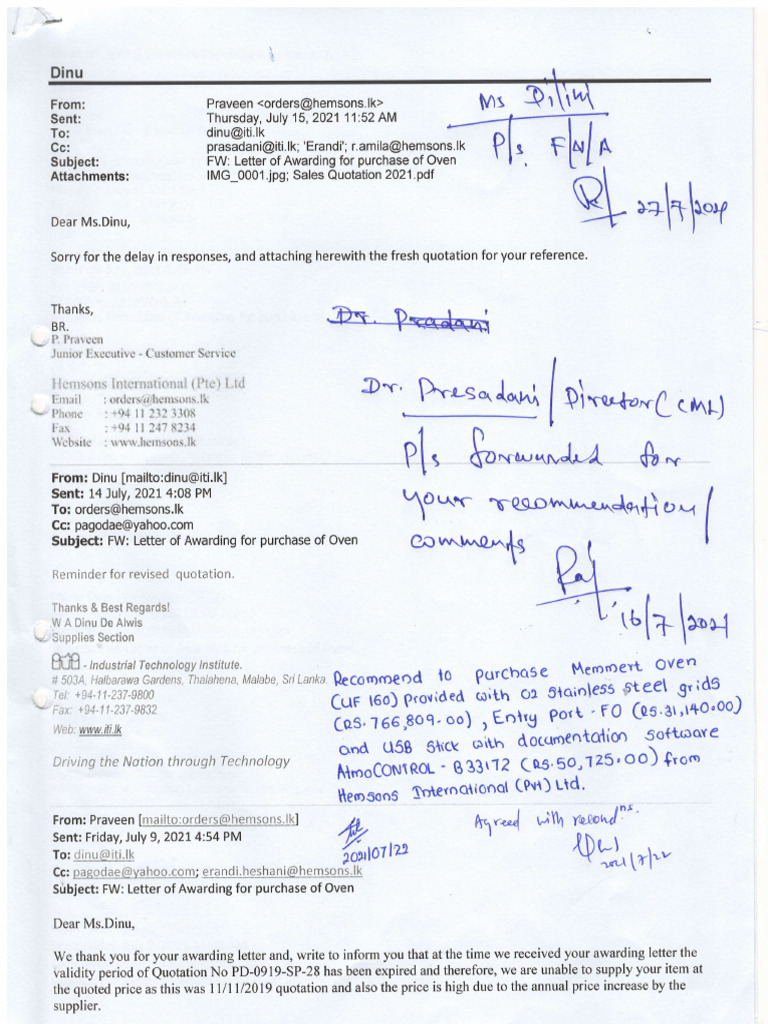 Dinu
From: Praveen <orders@hemsons.lk>
Sent: Thursday, July 15, 2021 11:52 AM
To: dinu@iti.lk
Cc: prasadani@iti.lk; 'Erandi'; r.amila@hemsons.lk
Subject: FW: Letter of Awarding for purchase of Oven
Attachments: IMG_0001.jpg; Sales Quotation 2021.pdf
Ms Dilini
P/s F/N/A
27/7/2021
Dear Ms.Dinu,
Sorry for the delay in responses, and attaching herewith the fresh quotation for your reference.
Thanks,
BR.
P. Praveen
Junior Executive - Customer Service
Hemsons International (Pte) Ltd
Email : orders@hemsons.lk
Phone : +94 11 232 3308
Fax : +94 11 247 8234
Website : www.hemsons.lk
Dr. Pradani
Dr. Presadani / Director (CML)
P/s forwarded for
your recommendation /
comments
Raj
16/7/2021
From: Dinu [mailto:dinu@iti.lk]
Sent: 14 July, 2021 4:08 PM
To: orders@hemsons.lk
Cc: pagodae@yahoo.com
Subject: FW: Letter of Awarding for purchase of Oven
Reminder for revised quotation.
Thanks & Best Regards!
W A Dinu De Alwis
Supplies Section
iti - Industrial Technology Institute.
# 503A, Halbarawa Gardens, Thalahena, Malabe, Sri Lanka.
Tel: +94-11-237-9800
Fax: +94-11-237-9832
Web: www.iti.lk
Driving the Nation through Technology
Recommend to purchase Memmert oven
(UF 160) Provided with 02 stainless steel grids
(RS. 766,809.00), Entry Port - FO (RS.31,140.00)
and USB stick with documentation software
AtmoCONTROL - B33172 (RS.50,725.00) from
Hemsons International (Pvt) Ltd.
2021/07/22
Agreed with recond ns.
2021/7/22
From: Praveen [mailto:orders@hemsons.lk]
Sent: Friday, July 9, 2021 4:54 PM
To: dinu@iti.lk
Cc: pagodae@yahoo.com; erandi.heshani@hemsons.lk
Subject: FW: Letter of Awarding for purchase of Oven
Dear Ms.Dinu,
We thank you for your awarding letter and, write to inform you that at the time we received your awarding letter the
validity period of Quotation No PD-0919-SP-28 has been expired and therefore, we are unable to supply your item at
the quoted price as this was 11/11/2019 quotation and also the price is high due to the annual price increase by the
supplier.